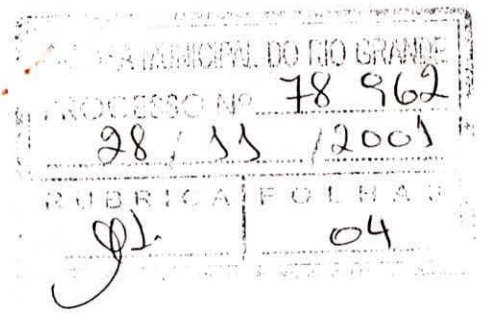 MUNICIPAL DO RIO GRANDE
PROCESSO Nº 78 962
28 / 11 / 2001
RUBRICA FOLHA
04